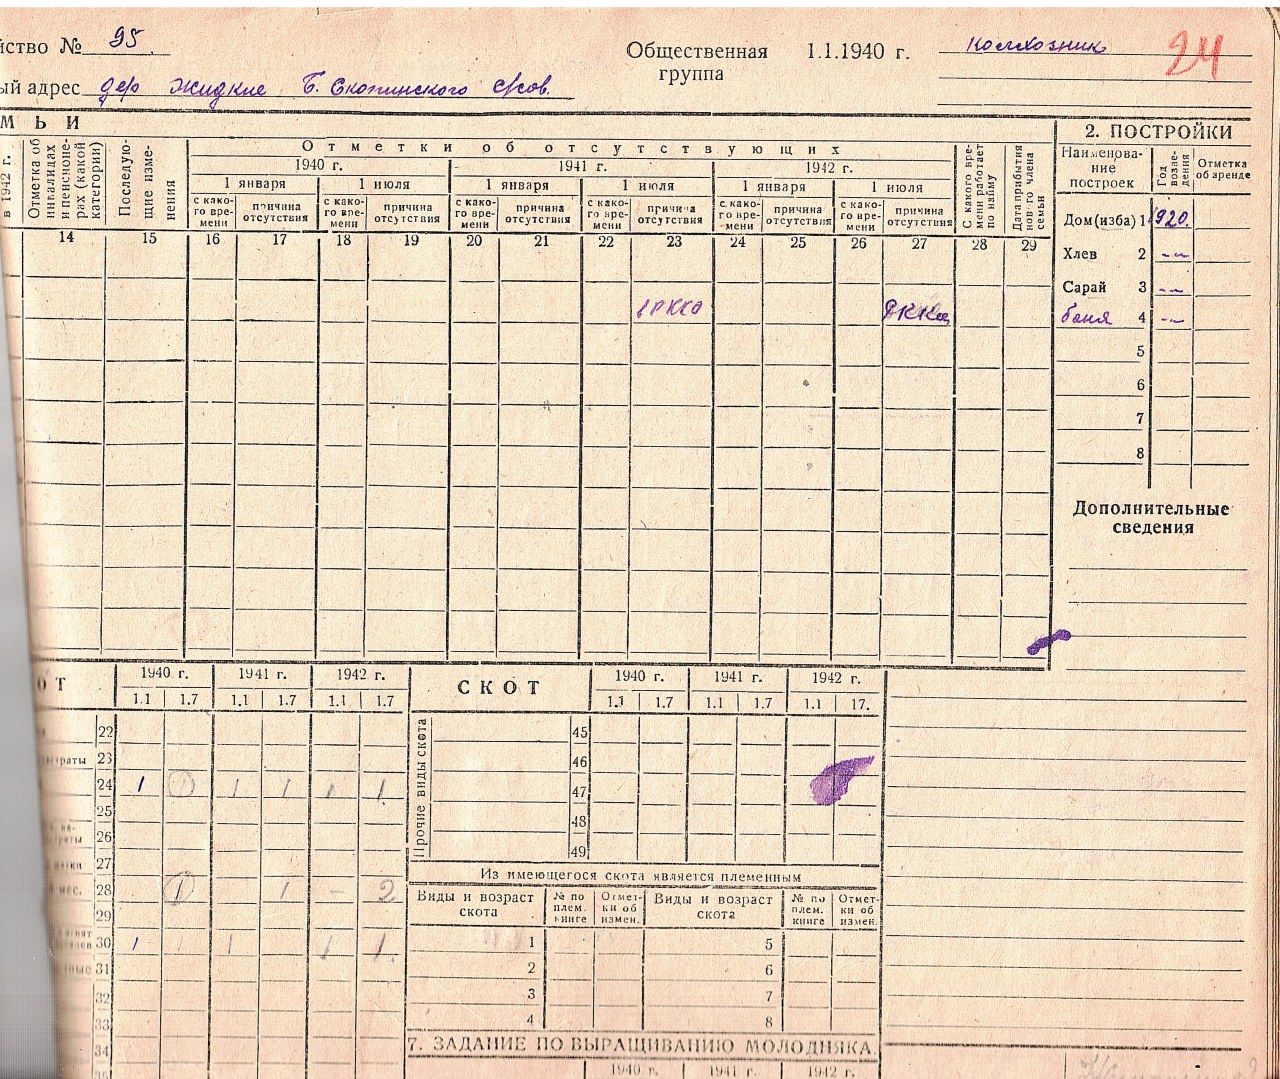 йство № 95.
Общественная группа 1.1.1940 г. колхозник 24
ый адрес дер Жидкие Б. Скопинского с/сов.
МЬИ
в 1942 г.
Отметка об инвалидах и пенсионерах (какой категории)
Последующие изменения
Отметки об отсутствующих
1940 г. 1941 г. 1942 г.
1 января 1 июля 1 января 1 июля 1 января 1 июля
с како-го вре-мени причина отсутствия с како-го вре-мени причина отсутствия с како-го вре-мени причина отсутствия с како-го вре-мени причина отсутствия с како-го вре-мени причина отсутствия с како-го вре-мени причина отсутствия
С какого вре-мени работает по найму
Дата прибытия нов го члена семьи
14 15 16 17 18 19 20 21 22 23 24 25 26 27 28 29
РККА РККА
2. ПОСТРОЙКИ
Наименова-ние построек Год возве-дения Отметка об аренде
Дом (изба) 1 1920.
Хлев 2 -„-
Сарай 3 -„-
баня 4 -„-
5
6
7
8
Дополнительные
сведения
ОТ 1940 г. 1941 г. 1942 г.
1.1 1.7 1.1 1.7 1.1 1.7
22
23
24 1 1 1 1 1 1
25
26
27
28 1 1 – 2
29
30 1 1 1 1 1
31
32
33
34
35
СКОТ 1940 г. 1941 г. 1942 г.
1.1 1.7 1.1 1.7 1.1 17.
Прочие виды скота
45
46
47
48
49
Из имеющегося скота является племенным
Виды и возраст скота № по плем. книге Отмет-ки об измен. Виды и возраст скота № по плем. книге Отмет-ки об измен.
1 5
2 6
3 7
4 8
7. ЗАДАНИЕ ПО ВЫРАЩИВАНИЮ МОЛОДНЯКА
1940 г. 1941 г. 1942 г.